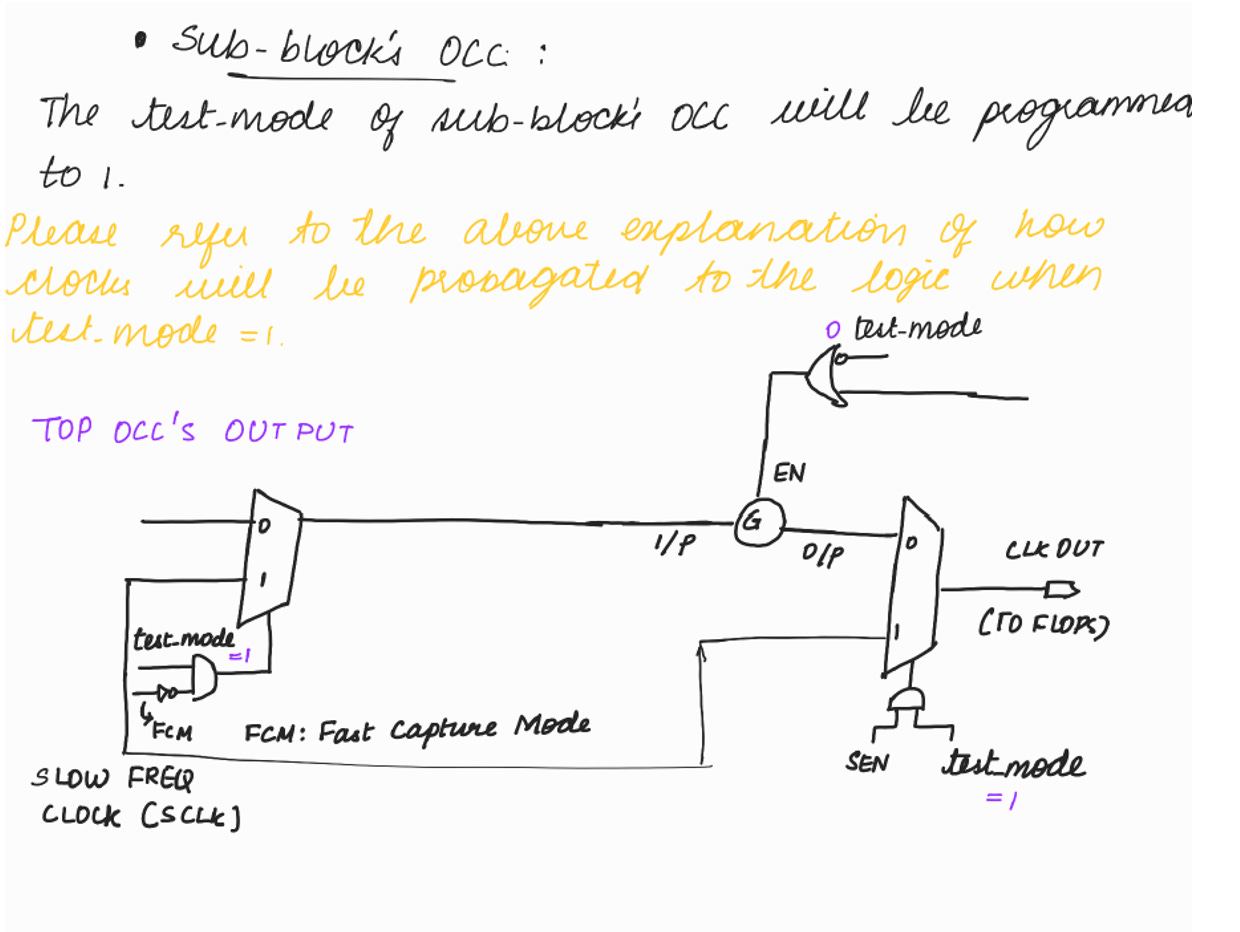 • Sub-block's OCC :
The test-mode of sub-block's OCC will be programmed
to 1.
Please refer to the above explanation of how
clocks will be propagated to the logic when
test-mode = 1.
0 test-mode
TOP OCC'S OUTPUT
EN
0
G
I/P
O/P
0
CLK OUT
1
(TO FLOPS)
1
test-mode
=1
FCM
FCM: Fast Capture Mode
SEN
test-mode
=1
SLOW FREQ
CLOCK [SCLK]